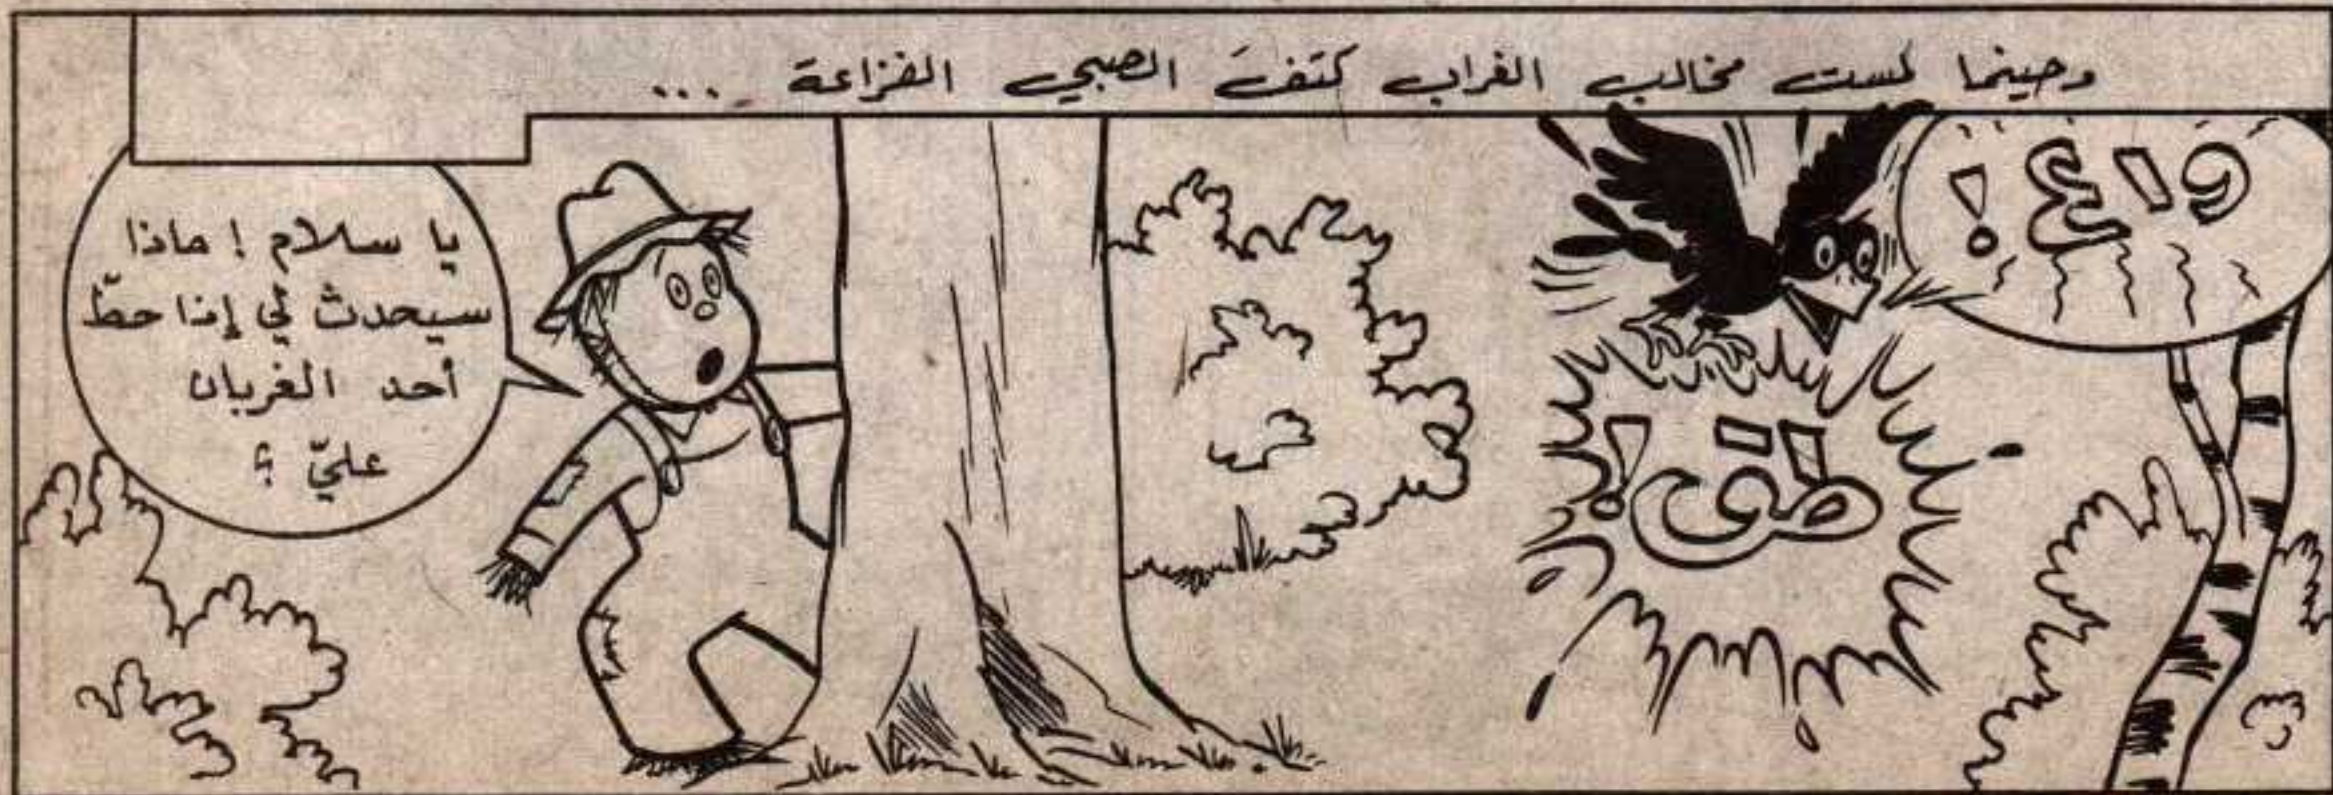 وحينما لمست مخالب الغراب كتفَ الصبي الفزاعة ...
واع !
طق !
يا سلام ! ماذا
سيحدث لي إذا حطّ
أحد الغربان
عليّ ؟